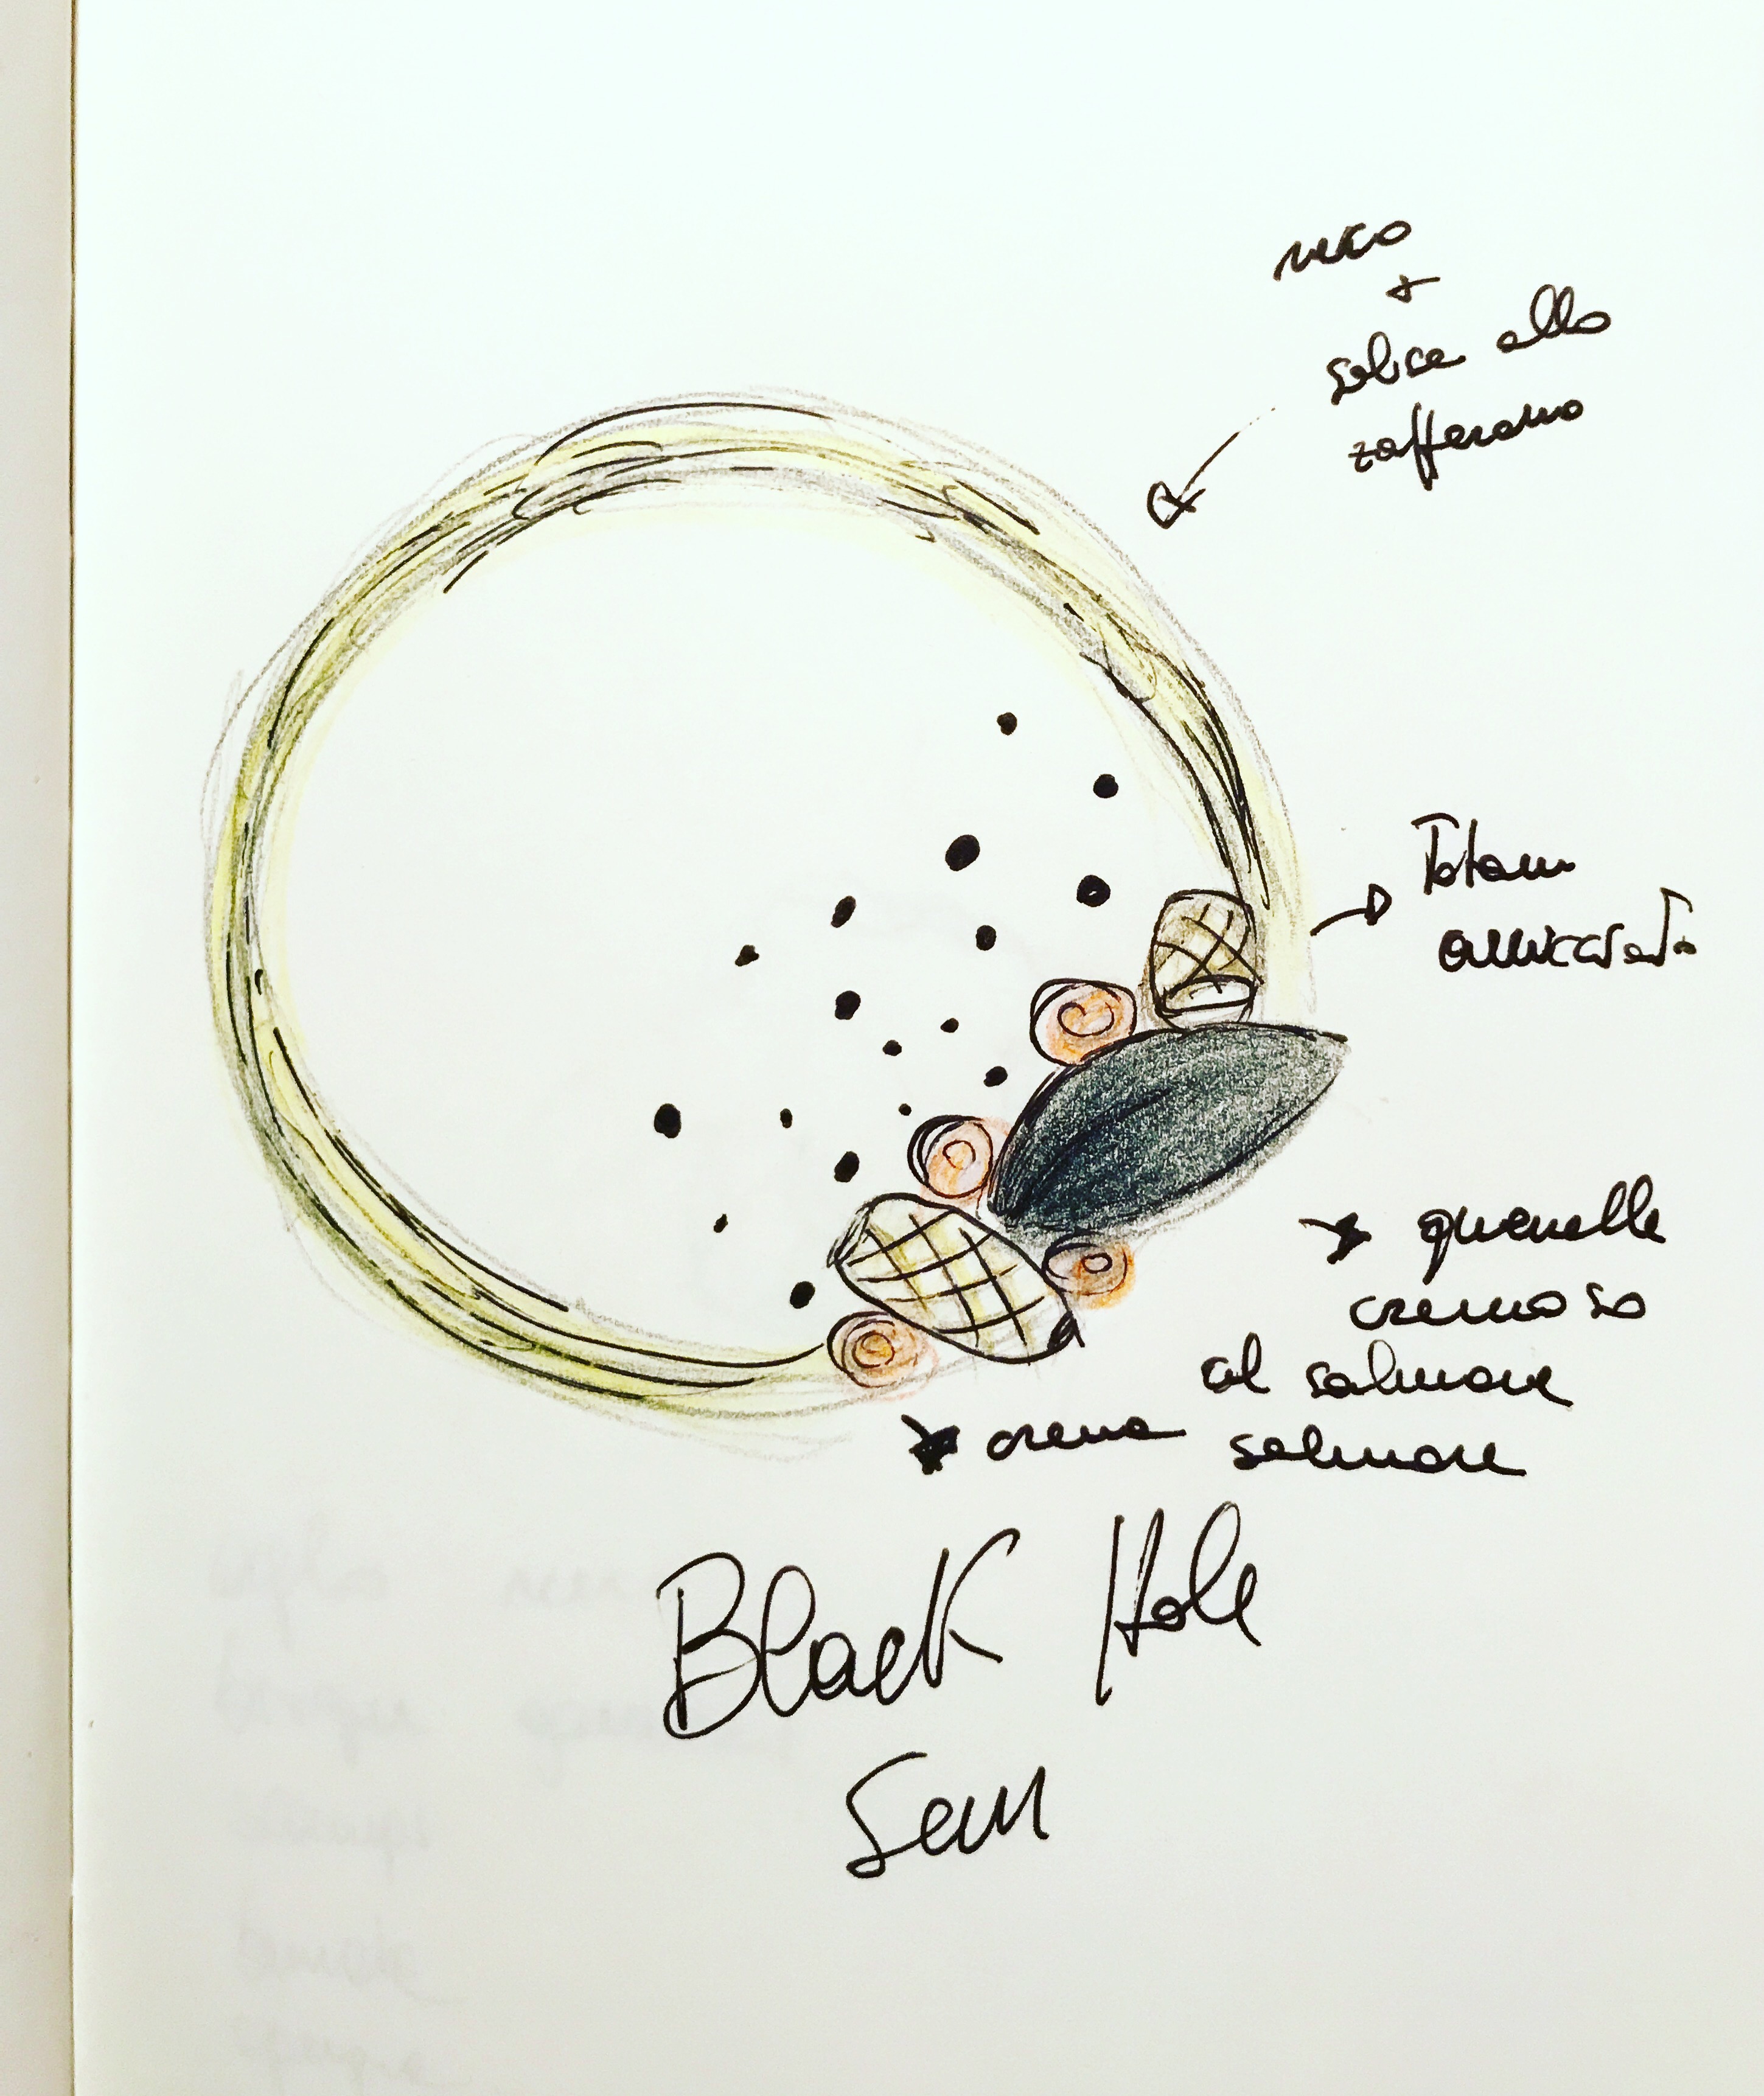 nero
+
salsa allo
zafferano
Totani
arricciati
quenelle
cremoso
al salmone
crema salmone
Black Hole